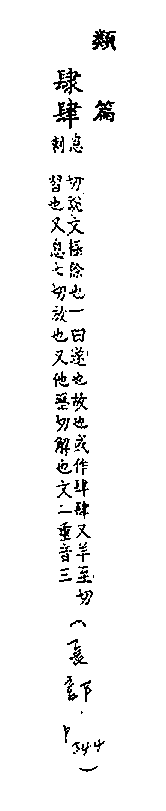 類篇
肆肆
息利
切說文極陳也一曰遂也故也或作肆肆又羊至切
習也又息七切放也又他歷切解也文二重音三
(長部,P344)